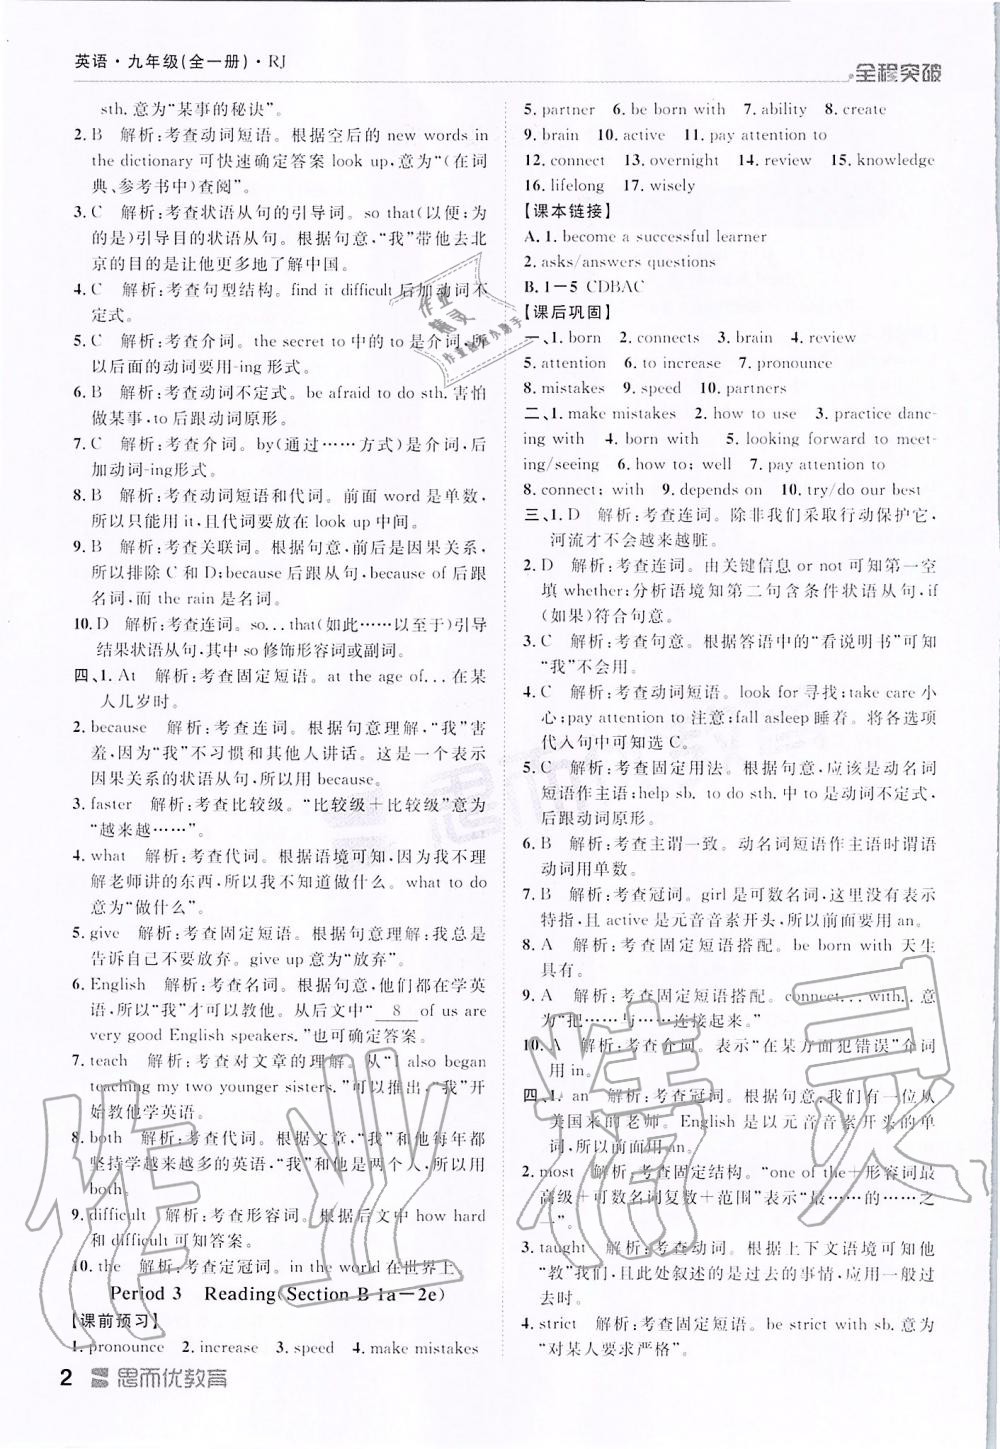 英语·九年级(全一册)·RJ
全程突破
sth.意为“某事的秘诀”。
2. B 解析:考查动词短语。根据空后的 new words in
the dictionary 可快速确定答案 look up,意为“(在词
典、参考书中)查阅”。
3. C 解析:考查状语从句的引导词。so that(以便;为
的是)引导目的状语从句。根据句意,“我”带他去北
京的目的是让他更多地了解中国。
4. C 解析:考查句型结构。find it difficult 后加动词不
定式。
5. C 解析:考查介词。the secret to 中的 to 是介词,所
以后面的动词要用-ing 形式。
6. B 解析:考查动词不定式。be afraid to do sth.害怕
做某事,to 后跟动词原形。
7. C 解析:考查介词。by(通过……方式)是介词,后
加动词-ing形式。
8. B 解析:考查动词短语和代词。前面 word 是单数,
所以只能用 it,且代词要放在 look up 中间。
9. B 解析:考查关联词。根据句意,前后是因果关系,
所以排除 C 和 D;because 后跟从句,because of 后跟
名词,而 the rain 是名词。
10. D 解析:考查连词。so...that(如此……以至于)引导
结果状语从句,其中 so 修饰形容词或副词。
四、1. At 解析:考查固定短语。at the age of...在某
人几岁时。
2. because 解析:考查连词。根据句意理解,“我”害
羞,因为“我”不习惯和其他人讲话。这是一个表示
因果关系的状语从句,所以用 because。
3. faster 解析:考查比较级。“比较级+比较级”意为
“越来越……”。
4. what 解析:考查代词。根据语境可知,因为我不理
解老师讲的东西,所以我不知道做什么。what to do
意为“做什么”。
5. give 解析:考查固定短语。根据句意理解:我总是
告诉自己不要放弃。give up 意为“放弃”。
6. English 解析:考查名词。根据句意,他们都在学英
语,所以“我”才可以教他。从后文中“ 8 of us are
very good English speakers.”也可确定答案。
7. teach 解析:考查对文章的理解。从“I also began
teaching my two younger sisters.”可以推出,“我”开
始教他学英语。
8. both 解析:考查代词。根据文章,“我”和他每年都
坚持学越来越多的英语,“我”和他是两个人,所以用
both。
9. difficult 解析:考查形容词。根据后文中 how hard
and difficult 可知答案。
10. the 解析:考查定冠词。in the world 在世界上。
Period 3 Reading(Section B 1a—2e)
【课前预习】
1. pronounce 2. increase 3. speed 4. make mistakes
5. partner 6. be born with 7. ability 8. create
9. brain 10. active 11. pay attention to
12. connect 13. overnight 14. review 15. knowledge
16. lifelong 17. wisely
【课本链接】
A. 1. become a successful learner
2. asks/answers questions
B. 1—5 CDBAC
【课后巩固】
一、1. born 2. connects 3. brain 4. review
5. attention 6. to increase 7. pronounce
8. mistakes 9. speed 10. partners
二、1. make mistakes 2. how to use 3. practice danc-
ing with 4. born with 5. looking forward to meet-
ing/seeing 6. how to; well 7. pay attention to
8. connect; with 9. depends on 10. try/do our best
三、1. D 解析:考查连词。除非我们采取行动保护它,
河流才不会越来越脏。
2. D 解析:考查连词。由关键信息 or not 可知第一空
填 whether;分析语境知第二句含条件状语从句,if
(如果)符合句意。
3. C 解析:考查句意。根据答语中的“看说明书”可知
“我”不会用。
4. C 解析:考查动词短语。look for 寻找;take care 小
心;pay attention to 注意;fall asleep 睡着。将各选项
代入句中可知选 C。
5. C 解析:考查固定用法。根据句意,应该是动名词
短语作主语;help sb. to do sth.中 to 是动词不定式,
后跟动词原形。
6. B 解析:考查主谓一致。动名词短语作主语时谓语
动词用单数。
7. B 解析:考查冠词。girl 是可数名词,这里没有表示
特指,且 active 是元音音素开头,所以前面要用 an。
8. A 解析:考查固定短语搭配。be born with 天生
具有。
9. A 解析:考查固定短语搭配。connect...with...意
为“把……与……连接起来。”
10. A 解析:考查介词。表示“在某方面犯错误”介词
用 in。
四、1. an 解析:考查冠词。根据句意:我们有一位从
美国来的老师。English 是以元音音素开头的单
词,所以前面用 an。
2. most 解析:考查固定结构。“one of the+形容词最
高级+可数名词复数+范围”表示“最……的……之
一”。
3. taught 解析:考查动词。根据上下文语境可知他
“教”我们,且此处叙述的是过去的事情,应用一般过
去时。
4. strict 解析:考查固定短语。be strict with sb.意为
“对某人要求严格”。
2 思而优教育
作业精灵
作业精灵
作业答案小助手
思而优教育